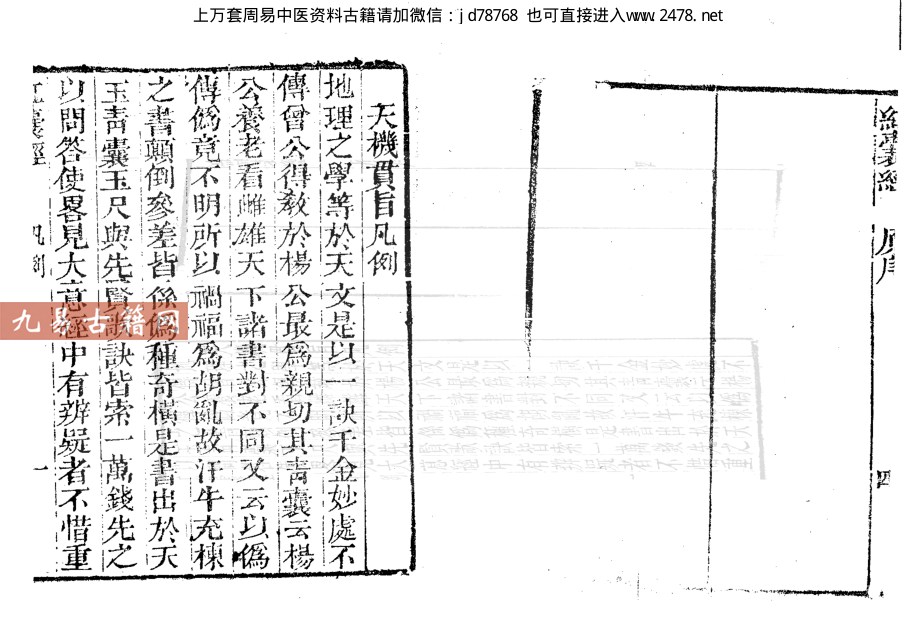 上万套周易中医资料古籍请加微信：jd78768 也可直接进入www.2478.net
天機貫旨凡例
地理之學等於天文是以一訣千金妙處不
傳曾公得教於楊公最爲親切其青囊云楊
公養老看雌雄天下諸書對不同又云以僞
傳僞竟不明所以禍福爲胡亂故汗牛充棟
之書顛倒參差皆係僞種奇橫是書出於天
玉青囊玉尺與先賢歌訣皆索一萬錢先之
以問答使畧見大意經中有辨疑者不惜重
凡例
一
四
九易古籍网